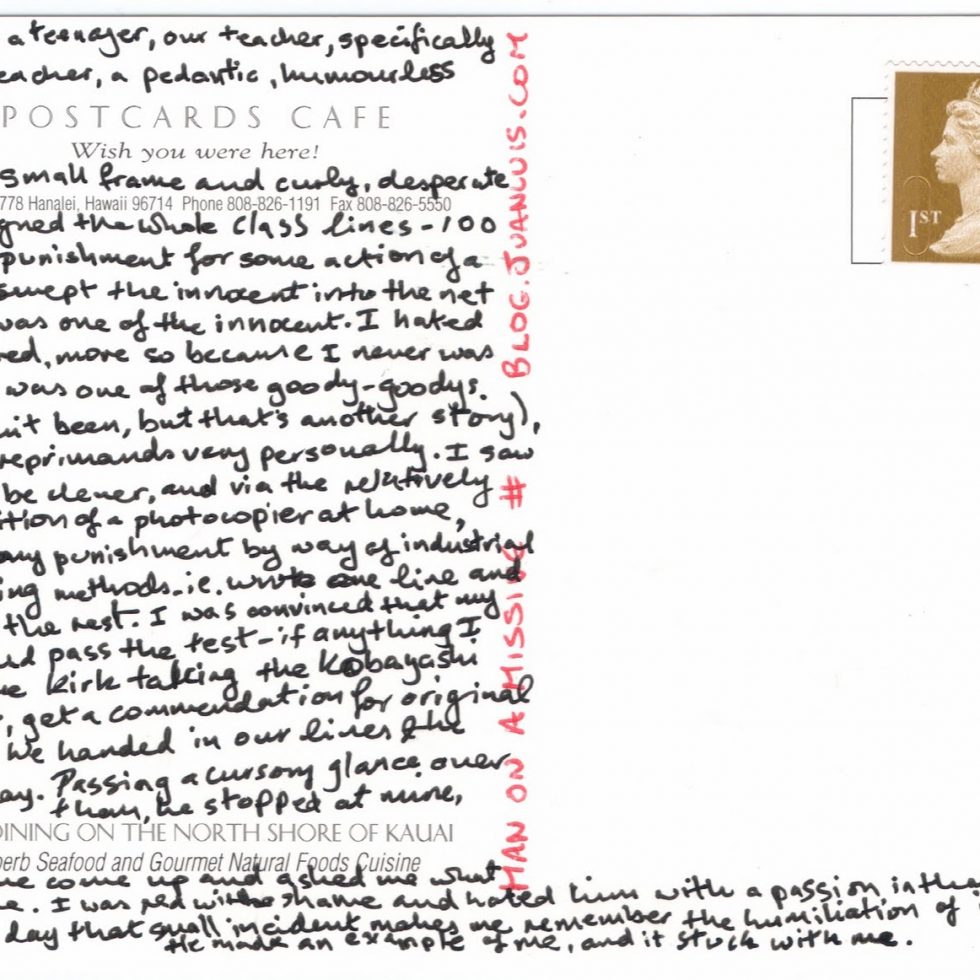 a teenager, our teacher, specifically
eacher, a pedantic, humourless
POSTCARDS CAFE
Wish you were here!
small frame and curly, desperate
778 Hanalei, Hawaii 96714 Phone 808-826-1191 Fax 808-826-5550
gned the whole class lines - 100
punishment for some action of a
swept the innocent into the net
was one of the innocent. I hated
red, more so because I never was
was one of those goody-goodys.
n't been, but that's another story),
reprimands very personally. I saw
be clever, and via the relatively
ition of a photocopier at home,
my punishment by way of industrial
ing methods - ie. write one line and
the rest. I was convinced that my
ld pass the test - if anything I
ke Kirk taking the Kobayashi
, get a commendation for original
We handed in our lines the
ay. Passing a cursory glance over
them, he stopped at mine,
DINING ON THE NORTH SHORE OF KAUAI
perb Seafood and Gourmet Natural Foods Cuisine
me come up and asked me what
e. I was red with shame and hated him with a passion in tha
day that small incident makes me remember the humiliation of
He made an example of me, and it stuck with me.
MAN ON A MISSIVE # BLOG.JUANLUIS.COM
1ST